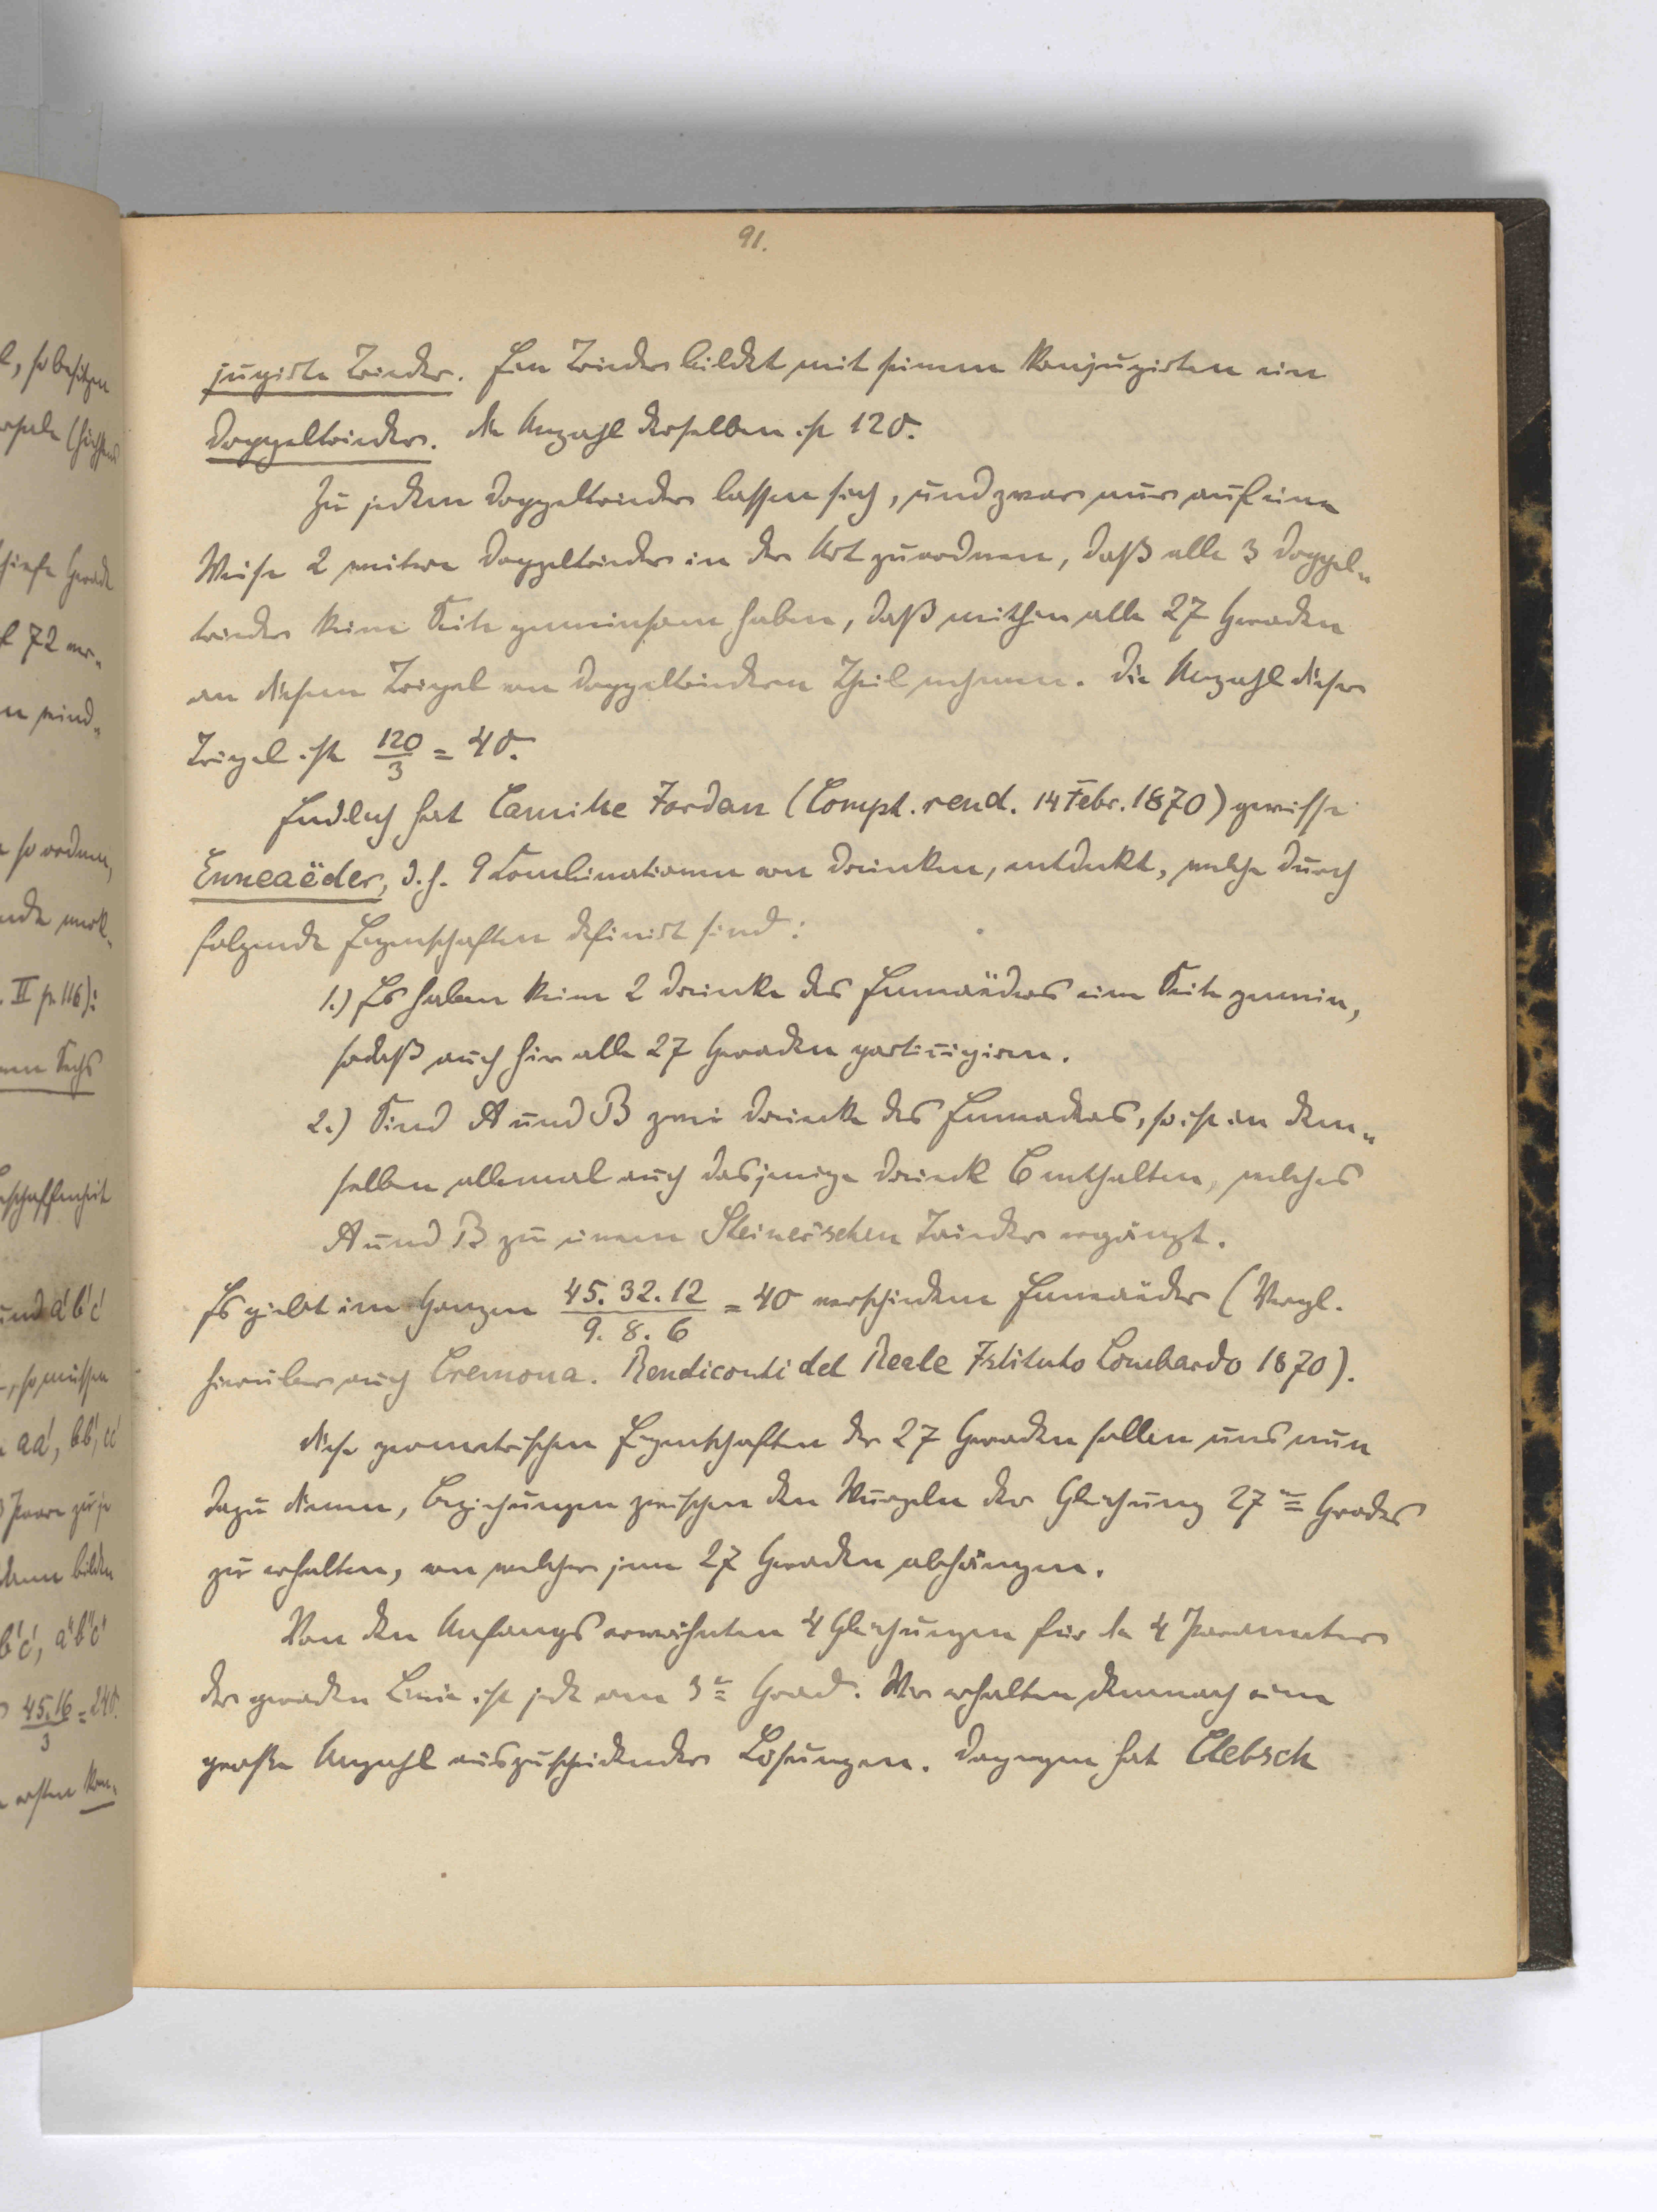 91.
jugirte Trieder. Ein Trieder bildet mit seinem konjugirten ein
Doppeltrieder. Die Anzahl derselben ist 120.
Zu jedem Doppeltrieder lassen sich, und zwar nur auf eine
Weise 2 weitere Doppeltrieder in der Art zuordnen, daß alle 3 Doppel„
trieder keine Seite gemeinsam haben, daß mithin alle 27 Geraden
an diesem Tripel von Doppeltriedern Theil nehmen. Die Anzahl dieser
Tripel ist 120/3 = 40.
Endlich hat Camille Jordan (Compt. rend. 14 Febr. 1870) gewisse
Enneaëder, d.h. 9 Kombinationen von Dreiecken, entdeckt, welche durch
folgende Eigenschaften definirt sind:
1.) Es haben keine 2 Dreiecke des Enneaëders eine Seite gemein,
sodaß auch hier alle 27 Geraden partizipiren.
2.) Sind A und B zwei Dreiecke des Enneaders, so ist in dem„
selben allemal auch dasjenige Dreieck C enthalten, welches
A und B zu einem Steiner'schen Trieder ergänzt.
Es giebt im Ganzen 45. 32. 12 / 9. 8. 6 = 40 verschiedene Enneaëder (Vergl.
hierüber auch Cremona. Rendiconti del Reale Istituto Lombardo 1870).
Diese geometrischen Eigenschaften der 27 Geraden sollen uns nun
dazu dienen, Beziehungen zwischen den Wurzeln der Gleichung 27ten Grades
zu erhalten, von welcher jene 27 Geraden abhängen.
Von den Anfangs erwähnten 4 Gleichungen für die 4 Parameter
der geraden Linie ist jede vom 3ten Grad. Wir erhalten demnach eine
große Anzahl auszuscheidender Lösungen. Dagegen hat Clebsch